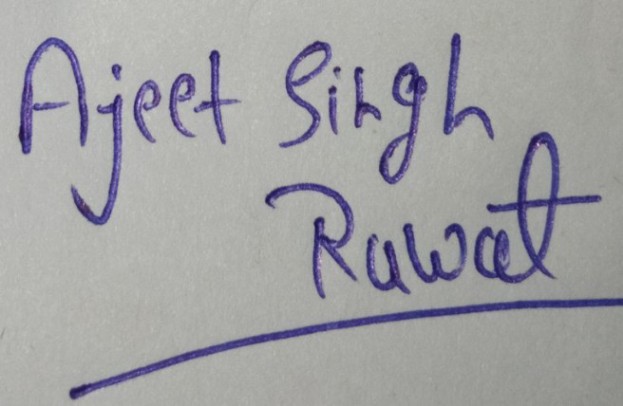 Ajeet Singh
Rawat